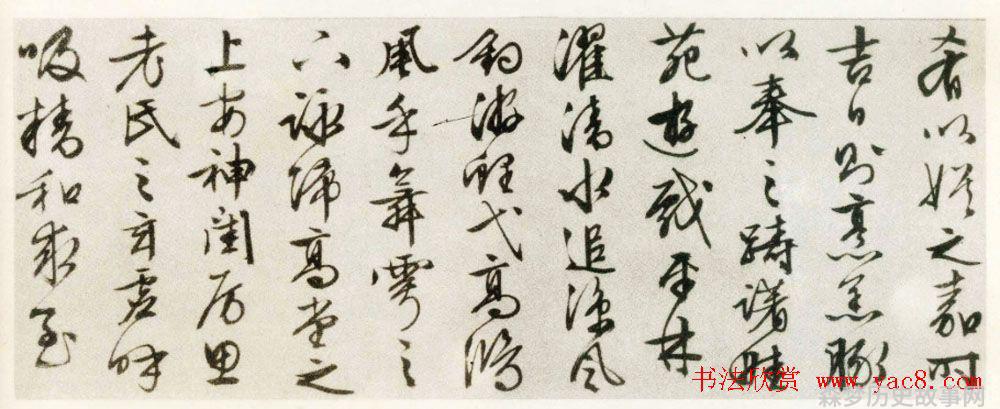 肴以娱之嘉时
吉日则烹羔豚
以奉之踌躇畦
苑遊戏平林
濯清水追凉风
钓游鲤弋高鸿
風乎舞雩之
下詠归高堂之
上安神闺房思
老氏之玄虚呼
吸精和求至
书法欣赏 www.yac8.com
森梦历史故事网